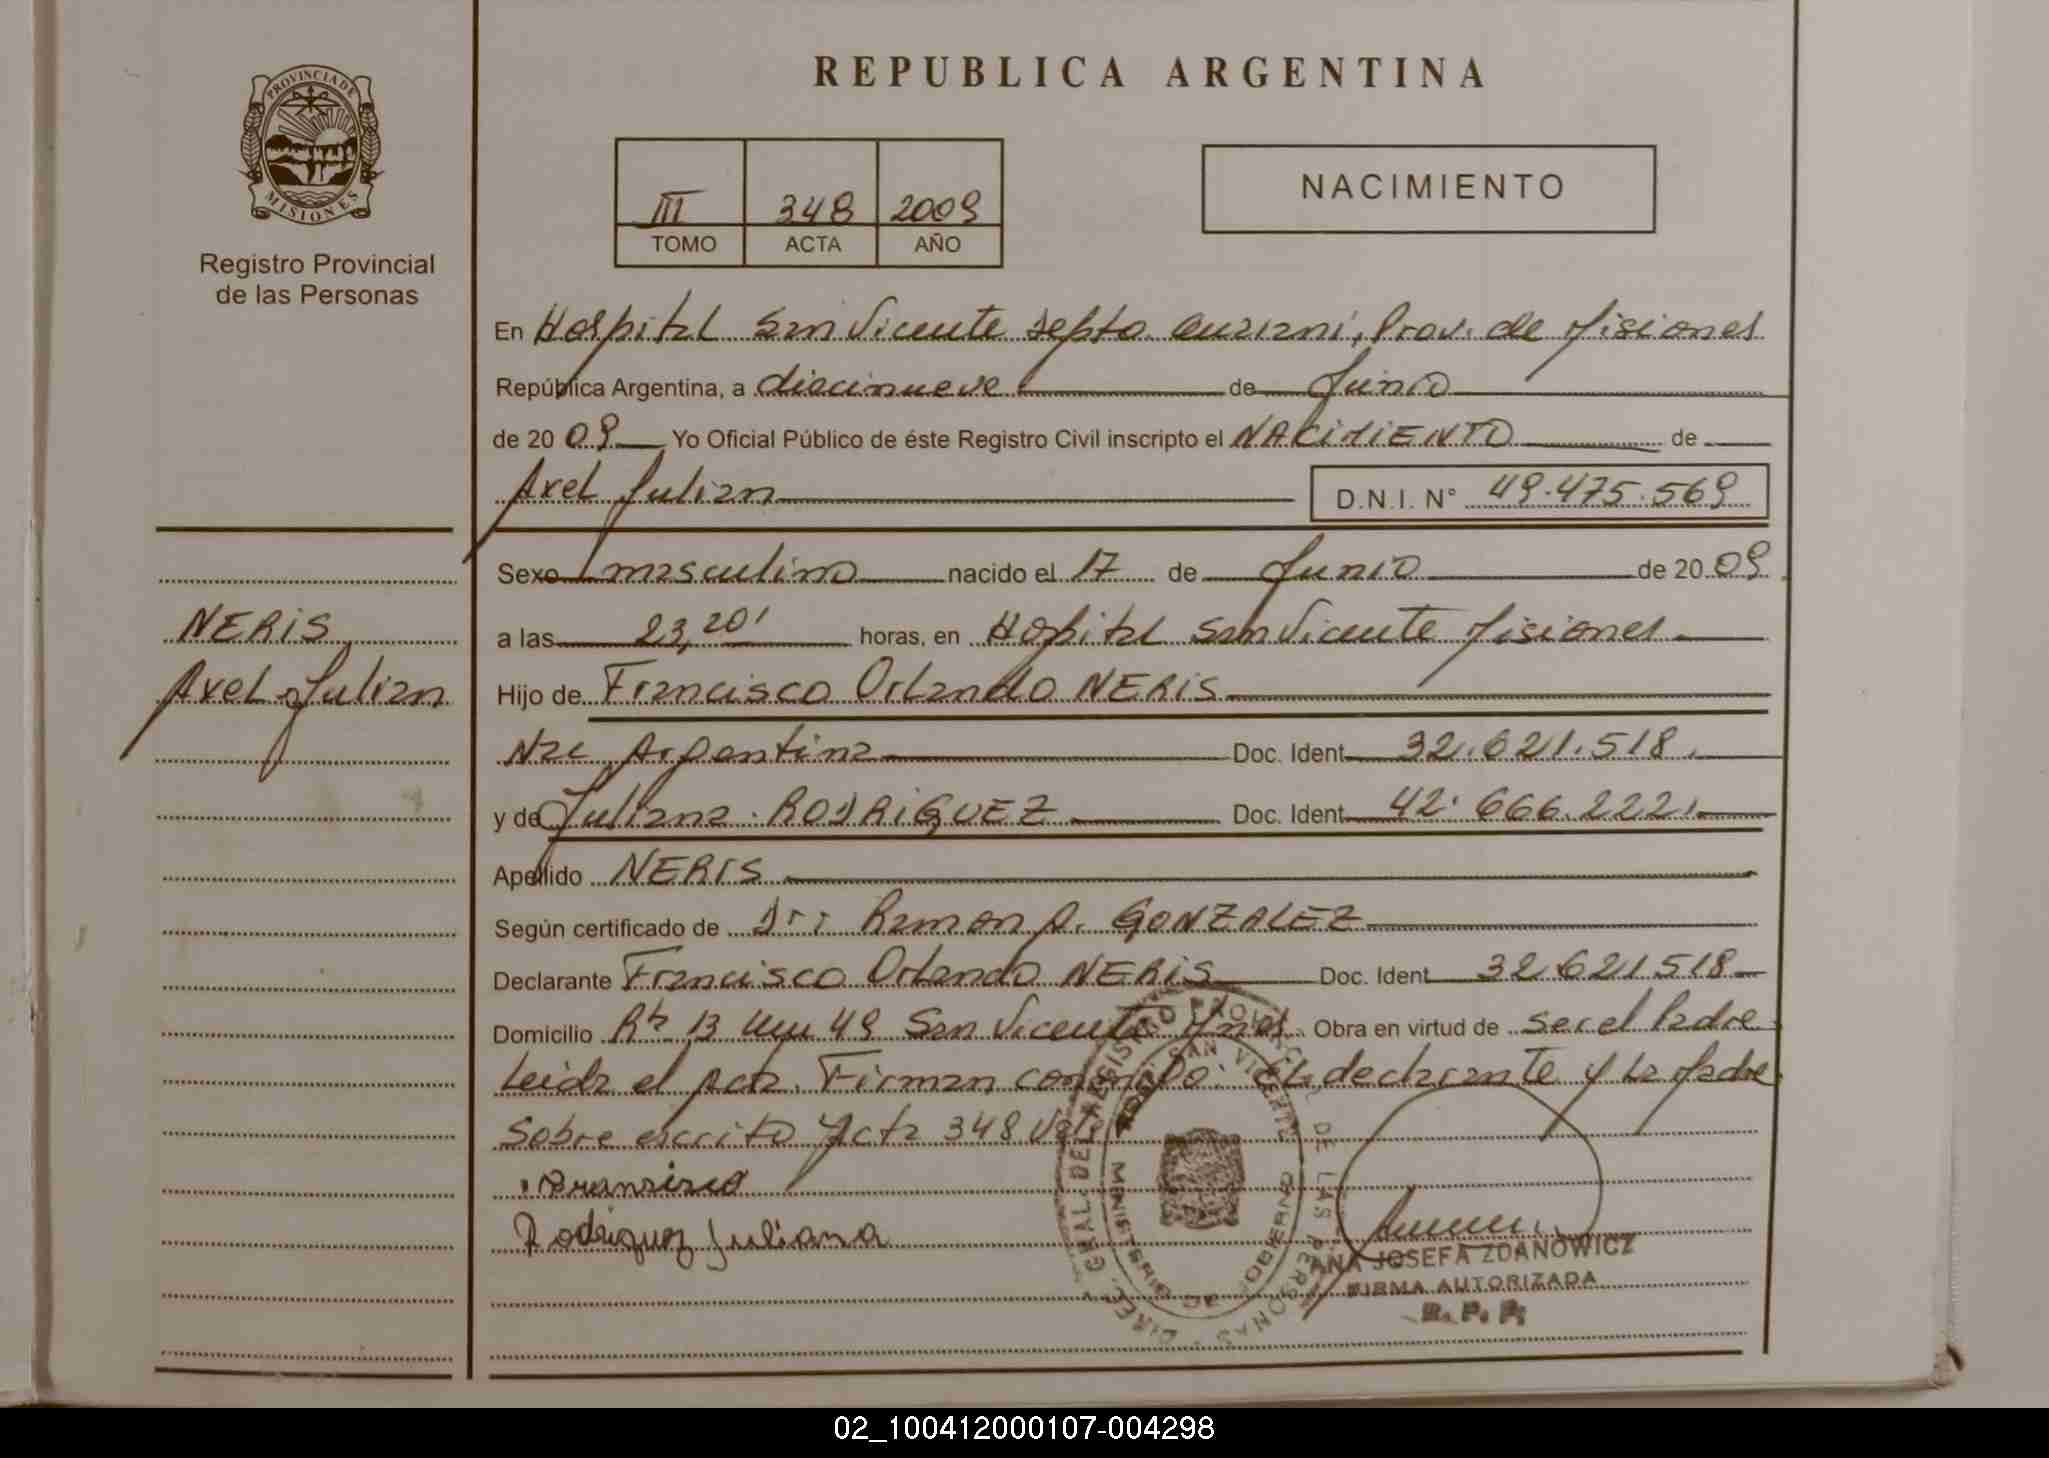 PROVINCIA DE
MISIONES
Registro Provincial
de las Personas
REPUBLICA ARGENTINA
III 348 2009
TOMO ACTA AÑO
NACIMIENTO
En Hospital San Vicente Depto Guaraní, Prov. de Misiones
República Argentina, a diecinueve de Junio
de 2009 Yo Oficial Público de éste Registro Civil inscripto el NACIMIENTO de
Axel Julian D.N.I. N° 49.475.569
Sexo masculino nacido el 17 de Junio de 2009
a las 23,20' horas, en Hospital San Vicente Misiones
Hijo de Francisco Orlando NERIS
Nac Argentina Doc. Ident 32.621.518.
y de Juliana RODRIGUEZ Doc. Ident 42.666.222.
Apellido NERIS
Según certificado de Dr: Ramon A. GONZALEZ
Declarante Francisco Orlando NERIS Doc. Ident 32.621518
Domicilio Rta 13 Km 49 San Vicente Mnes. Obra en virtud de ser el Padre
Leida el Acta. Firman conmigo: El declarante y la Madre
Sobre escrito Acta 348 Vale
Francisco
Rodriguez Juliana
NERIS
Axel Julian
DIREC. GRAL. DEL REGISTRO PROVINCIAL DE LAS PERSONAS
SAN VICENTE
MINISTERIO DE GOBIERNO
ANA JOSEFA ZDANOWICZ
FIRMA AUTORIZADA
R. P. P.
02_100412000107-004298